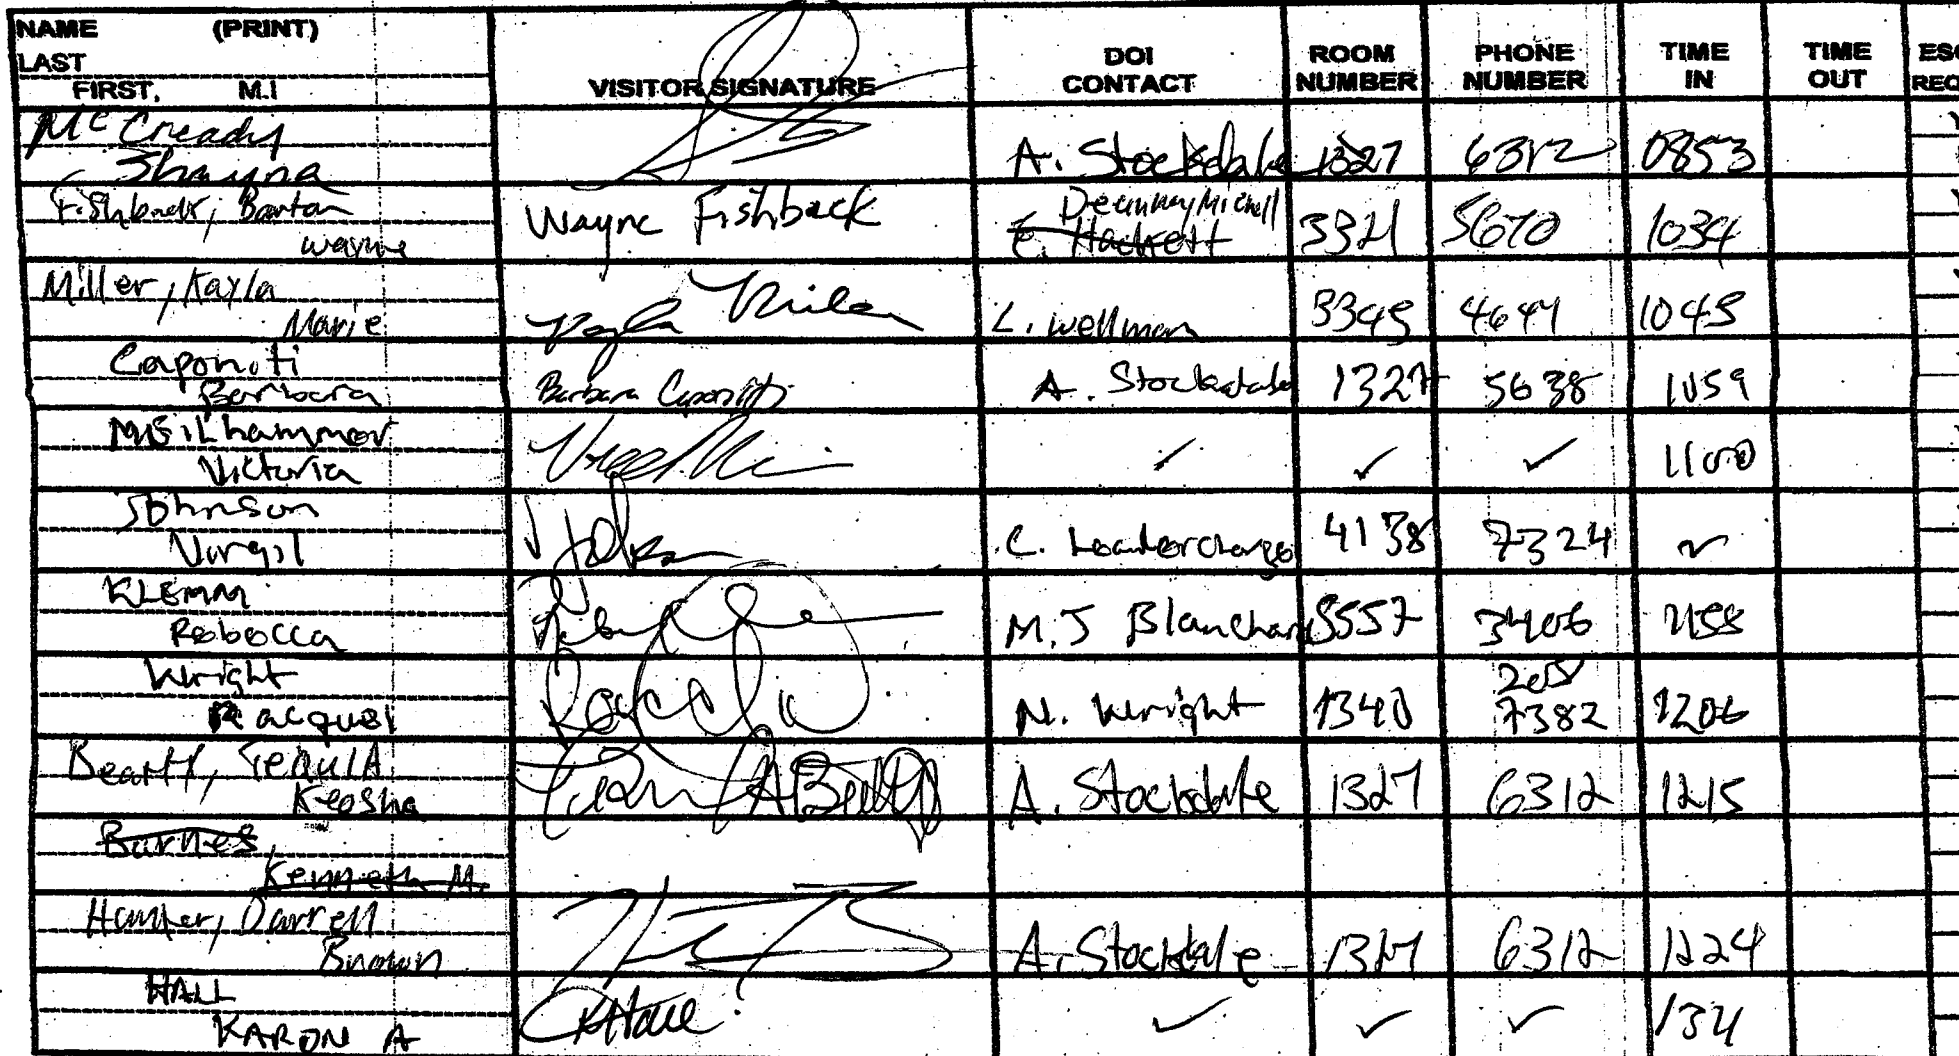 NAME (PRINT)
LAST
FIRST, M.I
VISITOR SIGNATURE
DOI
CONTACT
ROOM
NUMBER
PHONE
NUMBER
TIME
IN
TIME
OUT
McCready
Shayna
A. Stockdale 1327 6312 0853
Barton
Wayne
Wayne Fishback
E. Hackett
5670 1034
Miller, Kayla
Marie
Kayla Miller
L. Wellman 3345 1045
Caponiti
Barbara
Barbara Caponiti
A. Stockdale 1327 5638 1059
Victoria
✓ ✓ ✓ 1100
Johnson
Virgil
C. 4138 7324 ✓
KLEMM
Rebecca
M.J Blanchard 3557 3406
Wright
Racquel
N. Wright 1340 7382 1206
Beatty,
Keosha
A. Stockdale 1327 6312 1215
Barnes,
Kenneth M.
Hunter, Darrell
Brown
A. Stockdale 1327 6312 1224
HALL
KARON A
KHall
✓ ✓ ✓